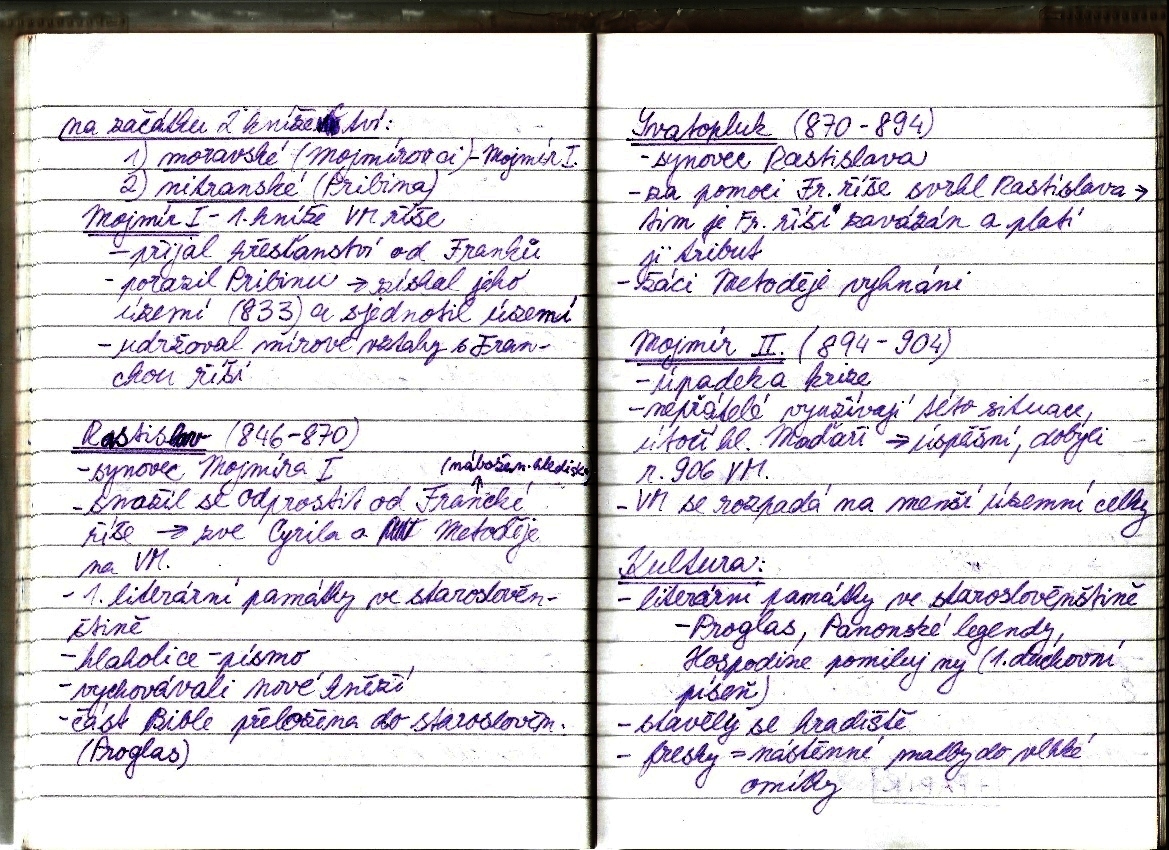 na začátku 2 knížectví:
1) moravské (Mojmírovci) - Mojmír I.
2) nitranské (Pribina)
Mojmír I - 1. kníže VM říše
- přijal křesťanství od Franků
- porazil Pribinu → získal jeho
území (833) a sjednotil území
- udržoval mírové vztahy s Fran-
ckou říší
Rastislav (846-870)
- synovec Mojmíra I
(nábožen. hledisko)
- snažil se odprostit od Francké
říše → zve Cyrila a Metoděje
na VM.
- 1. literární památky ve staroslověn-
štině
- hlaholice - písmo
- vychovávali nové kněží
- část Bible přeložena do staroslověn.
(Proglas)
Svatopluk (870-894)
- synovec Rastislava
- za pomoci Fr. říše svrhl Rastislava →
tím je Fr. říši zavázán a platí
jí tribut
- žáci Metoděje vyhnáni
Mojmír II. (894-904)
- úpadek a krize
- nepřátelé využívají této situace,
útočí hl. Maďaři → úspěšní, dobyli
r. 906 VM.
- VM se rozpadá na menší územní celky
Kultura:
- literární památky ve staroslověnštině
- Proglas, Panonské legendy,
Hospodine pomiluj ny (1. duchovní
píseň)
- stavěly se hradiště
- fresky = nástěnné malby do vlhké
omítky